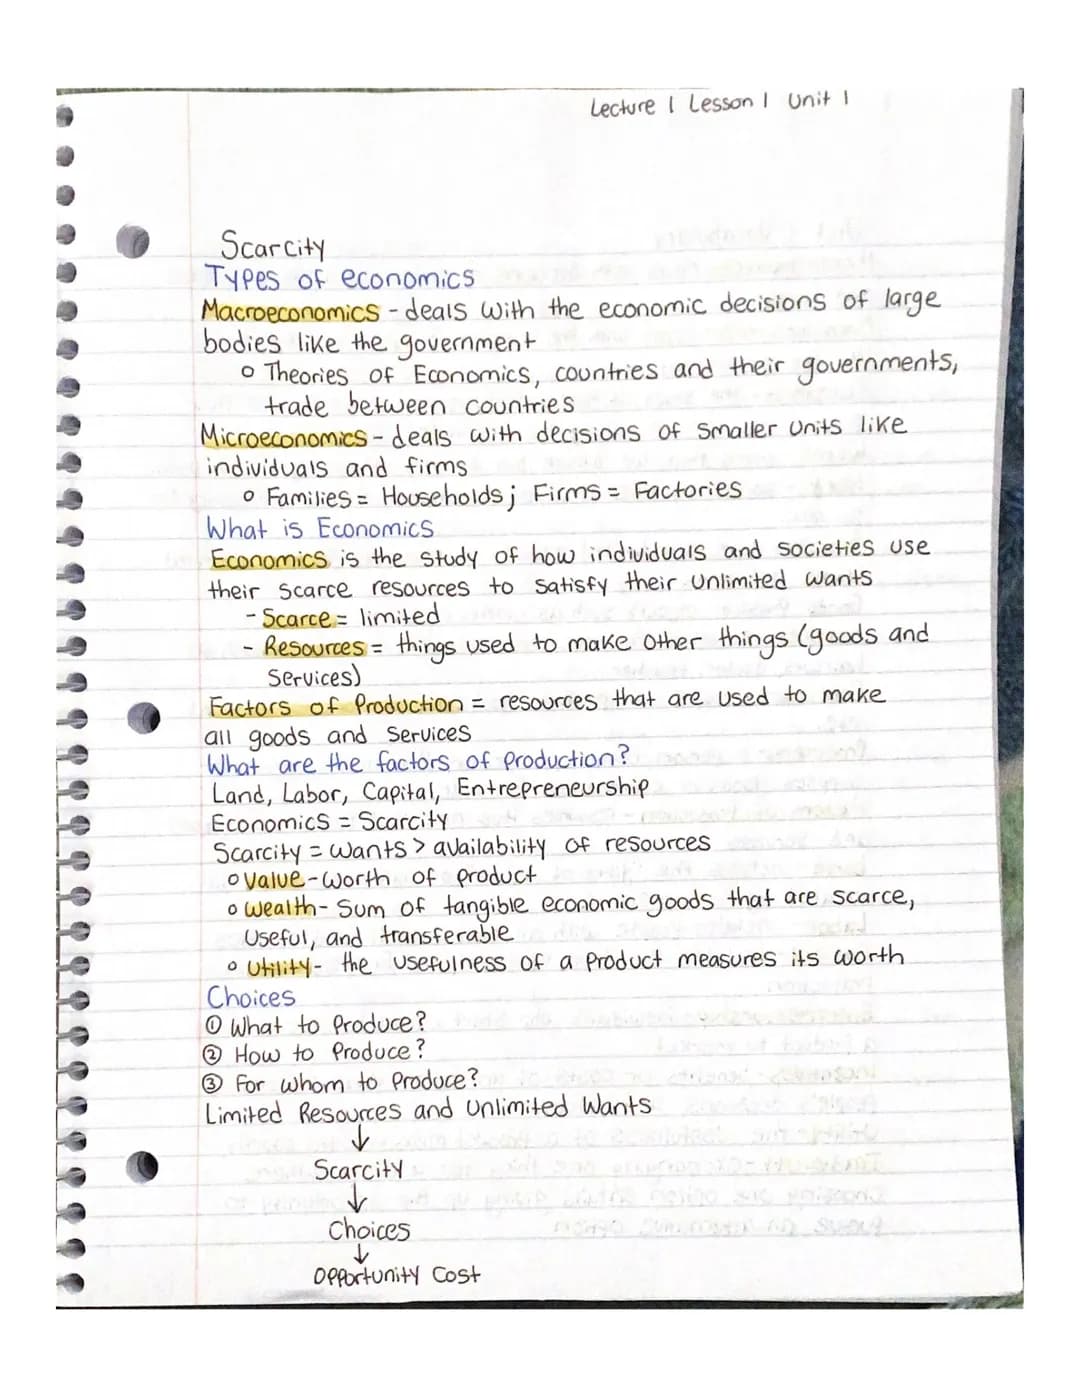 Lecture 1 Lesson 1 Unit 1
Scarcity
Types of economics
Macroeconomics - deals with the economic decisions of large
bodies like the government
o Theories of Economics, countries and their governments,
trade between countries
Microeconomics - deals with decisions of smaller units like
individuals and firms
o Families = Households; Firms = Factories
What is Economics
Economics is the study of how individuals and societies use
their scarce resources to satisfy their unlimited wants
- Scarce = limited
- Resources = things used to make other things (goods and
services)
Factors of Production = resources that are used to make
all goods and services
What are the factors of production?
Land, Labor, Capital, Entrepreneurship
Economics = Scarcity
Scarcity = wants > availability of resources
o Value - worth of product
o Wealth - Sum of tangible economic goods that are scarce,
useful, and transferable
o Utility - the usefulness of a product measures its worth
Choices
① What to produce?
② How to produce?
③ For whom to produce?
Limited Resources and Unlimited Wants
↓
Scarcity
↓
Choices
↓
Opportunity Cost